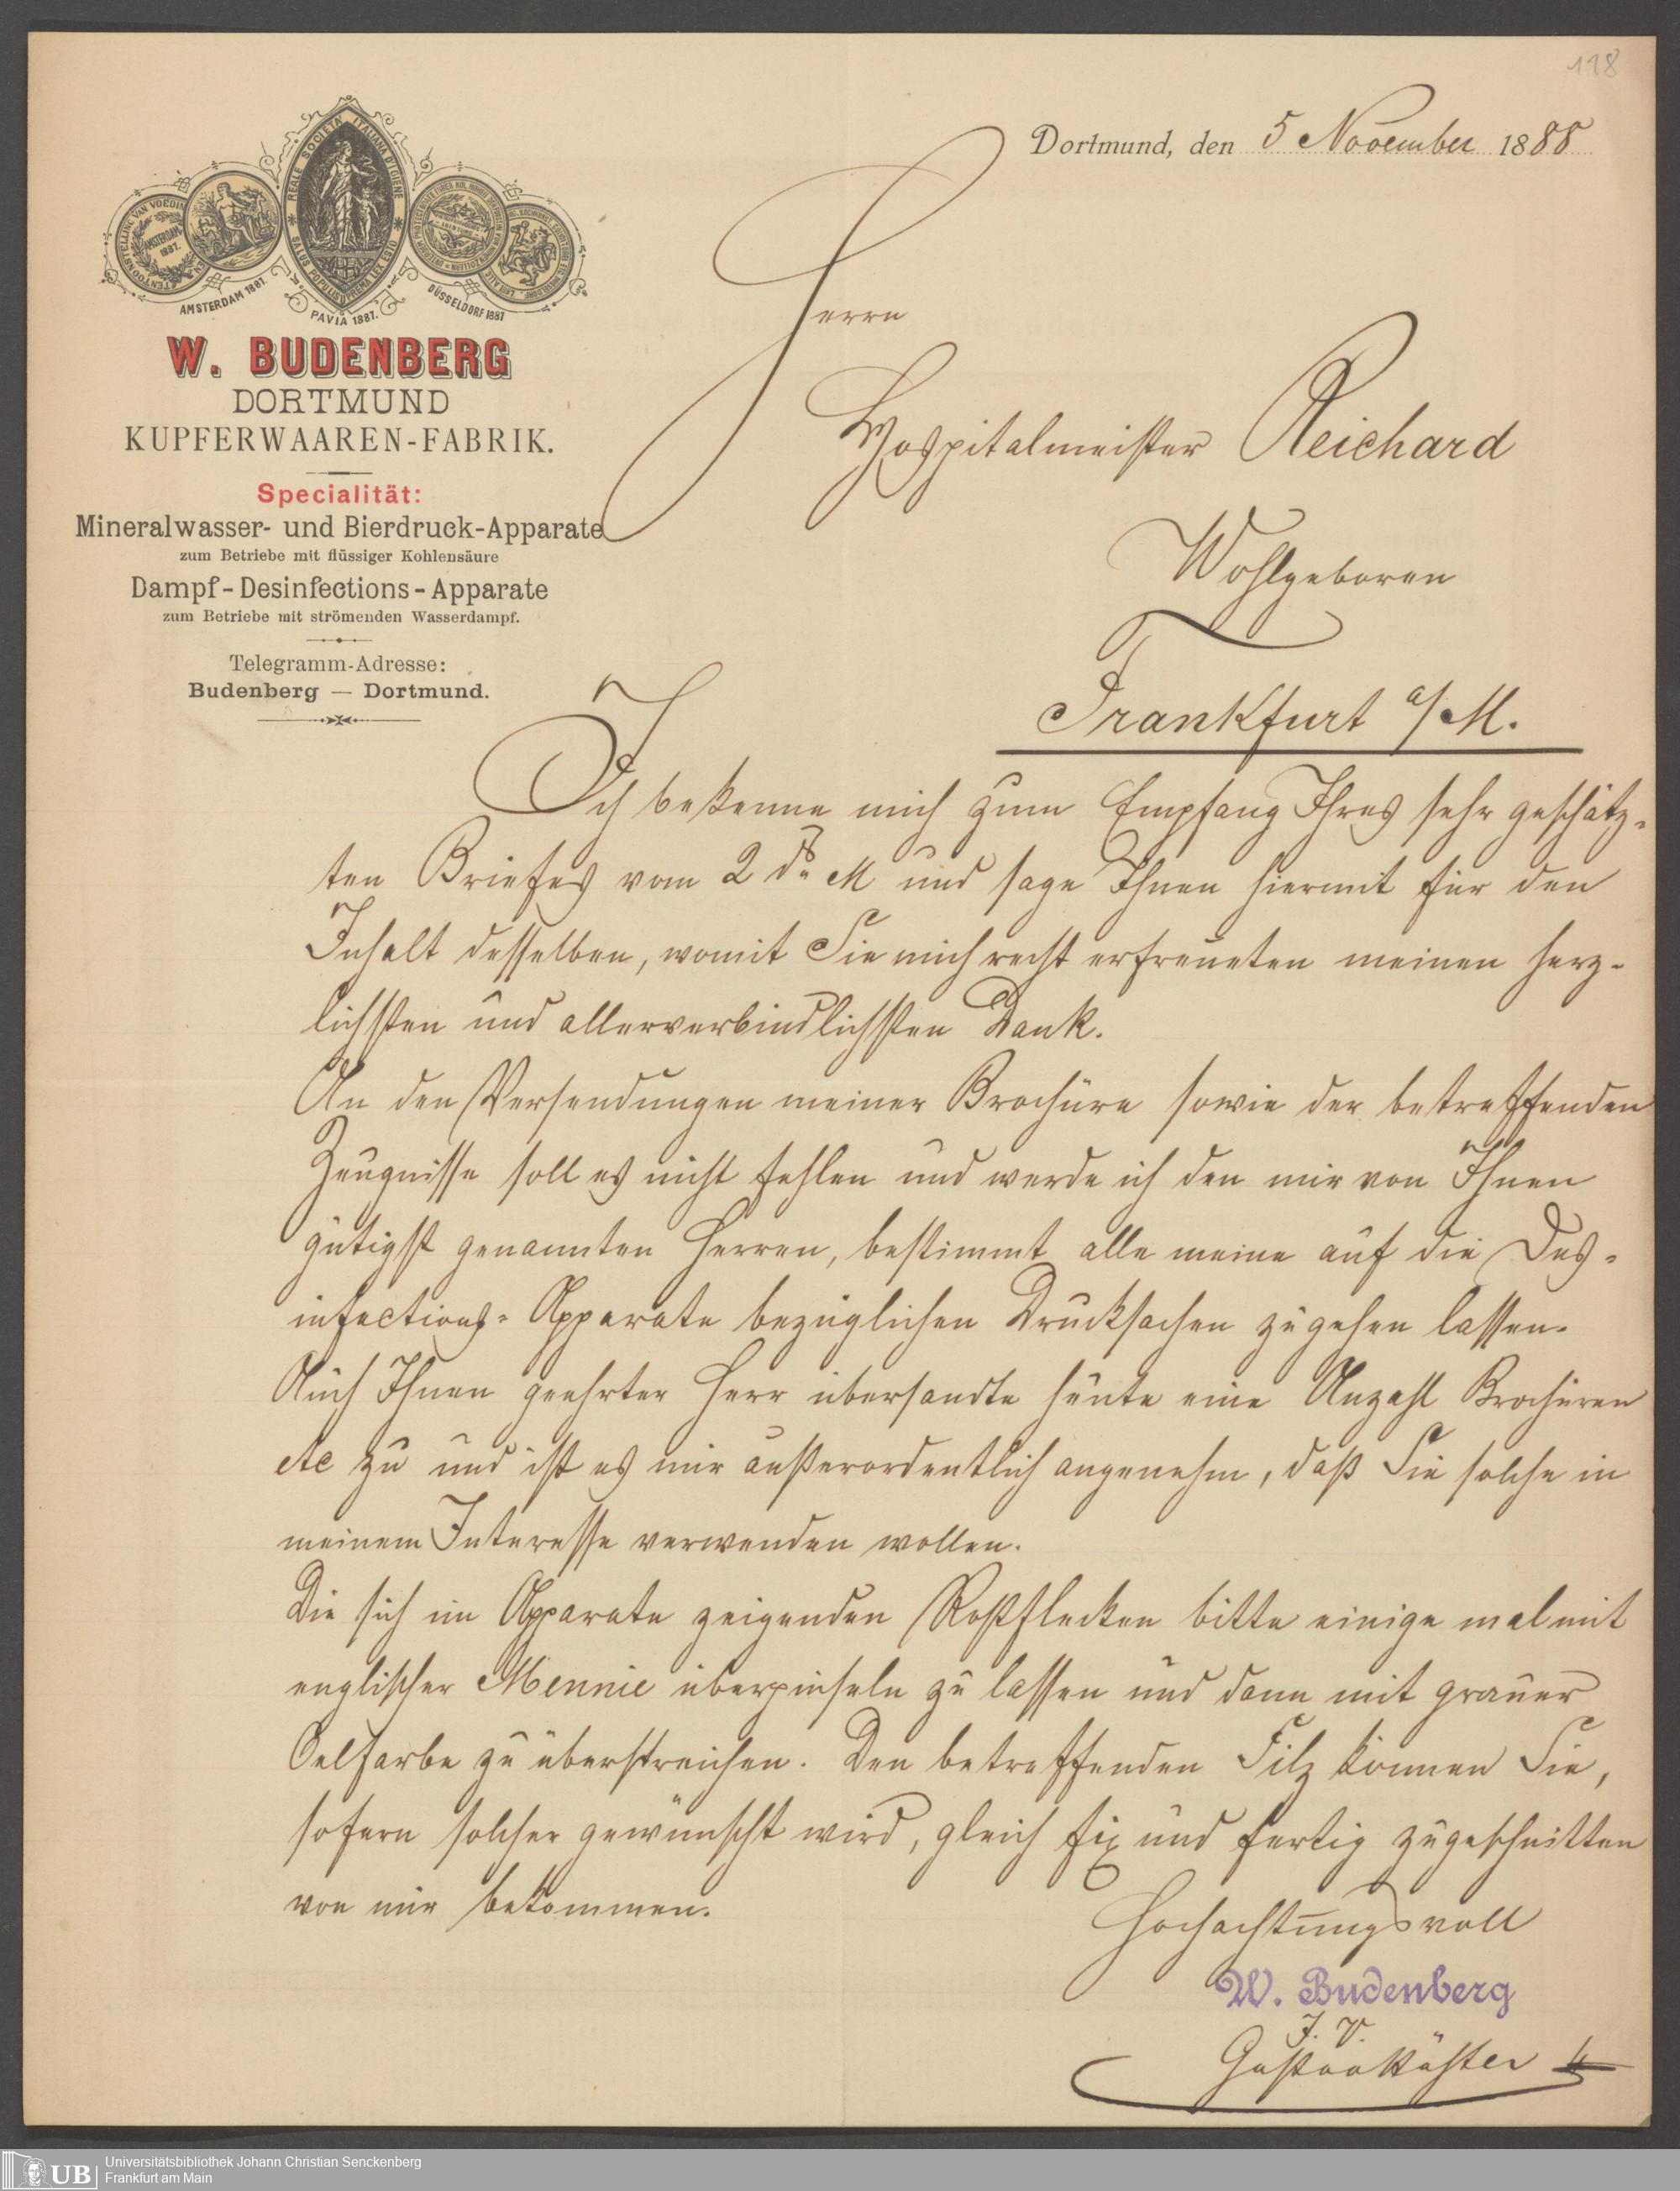 118
Dortmund, den 5 November 1888
REALE SOCIETÀ ITALIANA D'IGIENE
SALUS POPULI SUPREMA LEX ESTO
AMSTERDAM 1887.
AMSTERDAM 1887.
PAVIA 1887.
DÜSSELDORF 1887
W. BUDENBERG
DORTMUND
KUPFERWAAREN-FABRIK.
Specialität:
Mineralwasser- und Bierdruck-Apparate
zum Betriebe mit flüssiger Kohlensäure
Dampf-Desinfections-Apparate
zum Betriebe mit strömenden Wasserdampf.
Telegramm-Adresse:
Budenberg — Dortmund.
Herrn
Hospitalmeister Reichard
Wohlgeboren
Frankfurt a/M.
Ich bekenne mich zum Empfang Ihres sehr geschätz-
ten Briefes vom 2 ds M und sage Ihnen hiermit für den
Inhalt desselben, womit Sie mich recht erfreueten meinen herz-
lichsten und allerverbindlichsten Dank.
An den Versendungen meiner Brochüre sowie der betreffenden
Zeugnisse soll es nicht fehlen und werde ich den mir von Ihnen
gütigst genannten Herren, bestimmt alle meine auf die Des-
infections-Apparate bezüglichen Drucksachen zugehen lassen.
Auch Ihnen geehrter Herr übersandte heute eine Anzahl Brochüren
etc zu und ist es mir außerordentlich angenehm, daß Sie solche in
meinem Interesse verwenden wollen.
Die sich im Apparate zeigenden Rostflecken bitte einige mal mit
englischer Mennie überpinseln zu lassen und dann mit grauer
Oelfarbe zu überstreichen. Den betreffenden Filz können Sie,
sofern solcher gewünscht wird, gleich fix und fertig zugeschnitten
von mir bekommen.
Hochachtungsvoll
W. Budenberg
I. V.
Gustav Köster
UB
Universitätsbibliothek Johann Christian Senckenberg
Frankfurt am Main